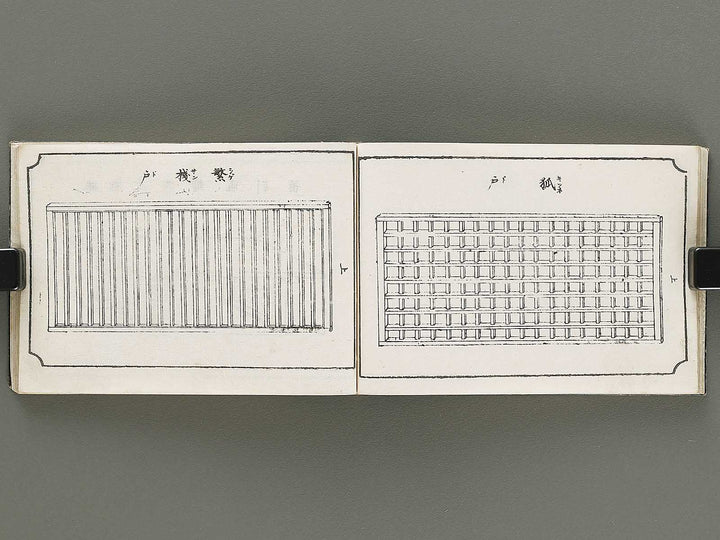 狐戸
上
繁棧戸
上